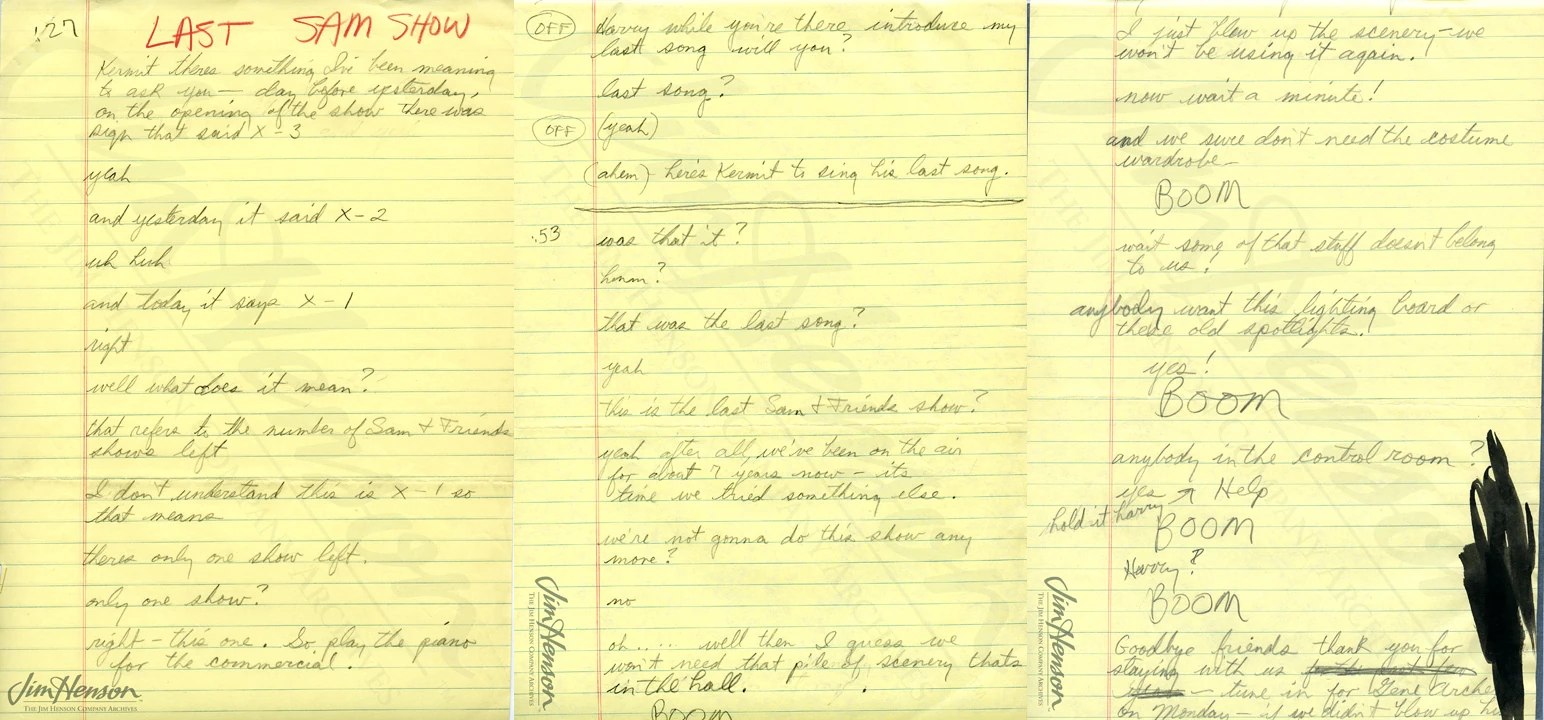 :27
LAST SAM SHOW
Kermit theres something I've been meaning
to ask you — day before yesterday,
on the opening of the show there was
sign that said X - 3
yeah
and yesterday it said X - 2
uh huh
and today it says X - 1
right
well what does it mean?
that refers to the number of Sam & Friends
shows left
I don't understand this is X - 1 so
that means
theres only one show left.
only one show?
right - this one. So play the piano
for the commercial.
Jim Henson
THE JIM HENSON COMPANY ARCHIVES
OFF Harry while you're there, introduce my
last song will you?
last song?
OFF (yeah)
(ahem) - here's Kermit to sing his last song.
:53 was that it?
hmm?
that was the last song?
yeah
this is the last Sam & Friends show?
yeah after all, we've been on the air
for about 7 years now - its
time we tried something else.
we're not gonna do this show any
more?
no
oh..... well then I guess we
won't need that pile of scenery thats
in the hall.
BOOM
Jim Henson
THE JIM HENSON COMPANY ARCHIVES
I just blew up the scenery - we
won't be using it again.
now wait a minute!
and we sure don't need the costume
wardrobe -
BOOM
wait some of that stuff doesn't belong
to us!
anybody want this lighting board or
these old spotlights!
yes!
BOOM
anybody in the control room?
yes Help
hold it harry
BOOM
Harry?
BOOM
Goodbye friends thank you for
staying with us for the past few
years - tune in for Gene Archer
on Monday - if we didn't blow up
Jim Henson
THE JIM HENSON COMPANY ARCHIVES